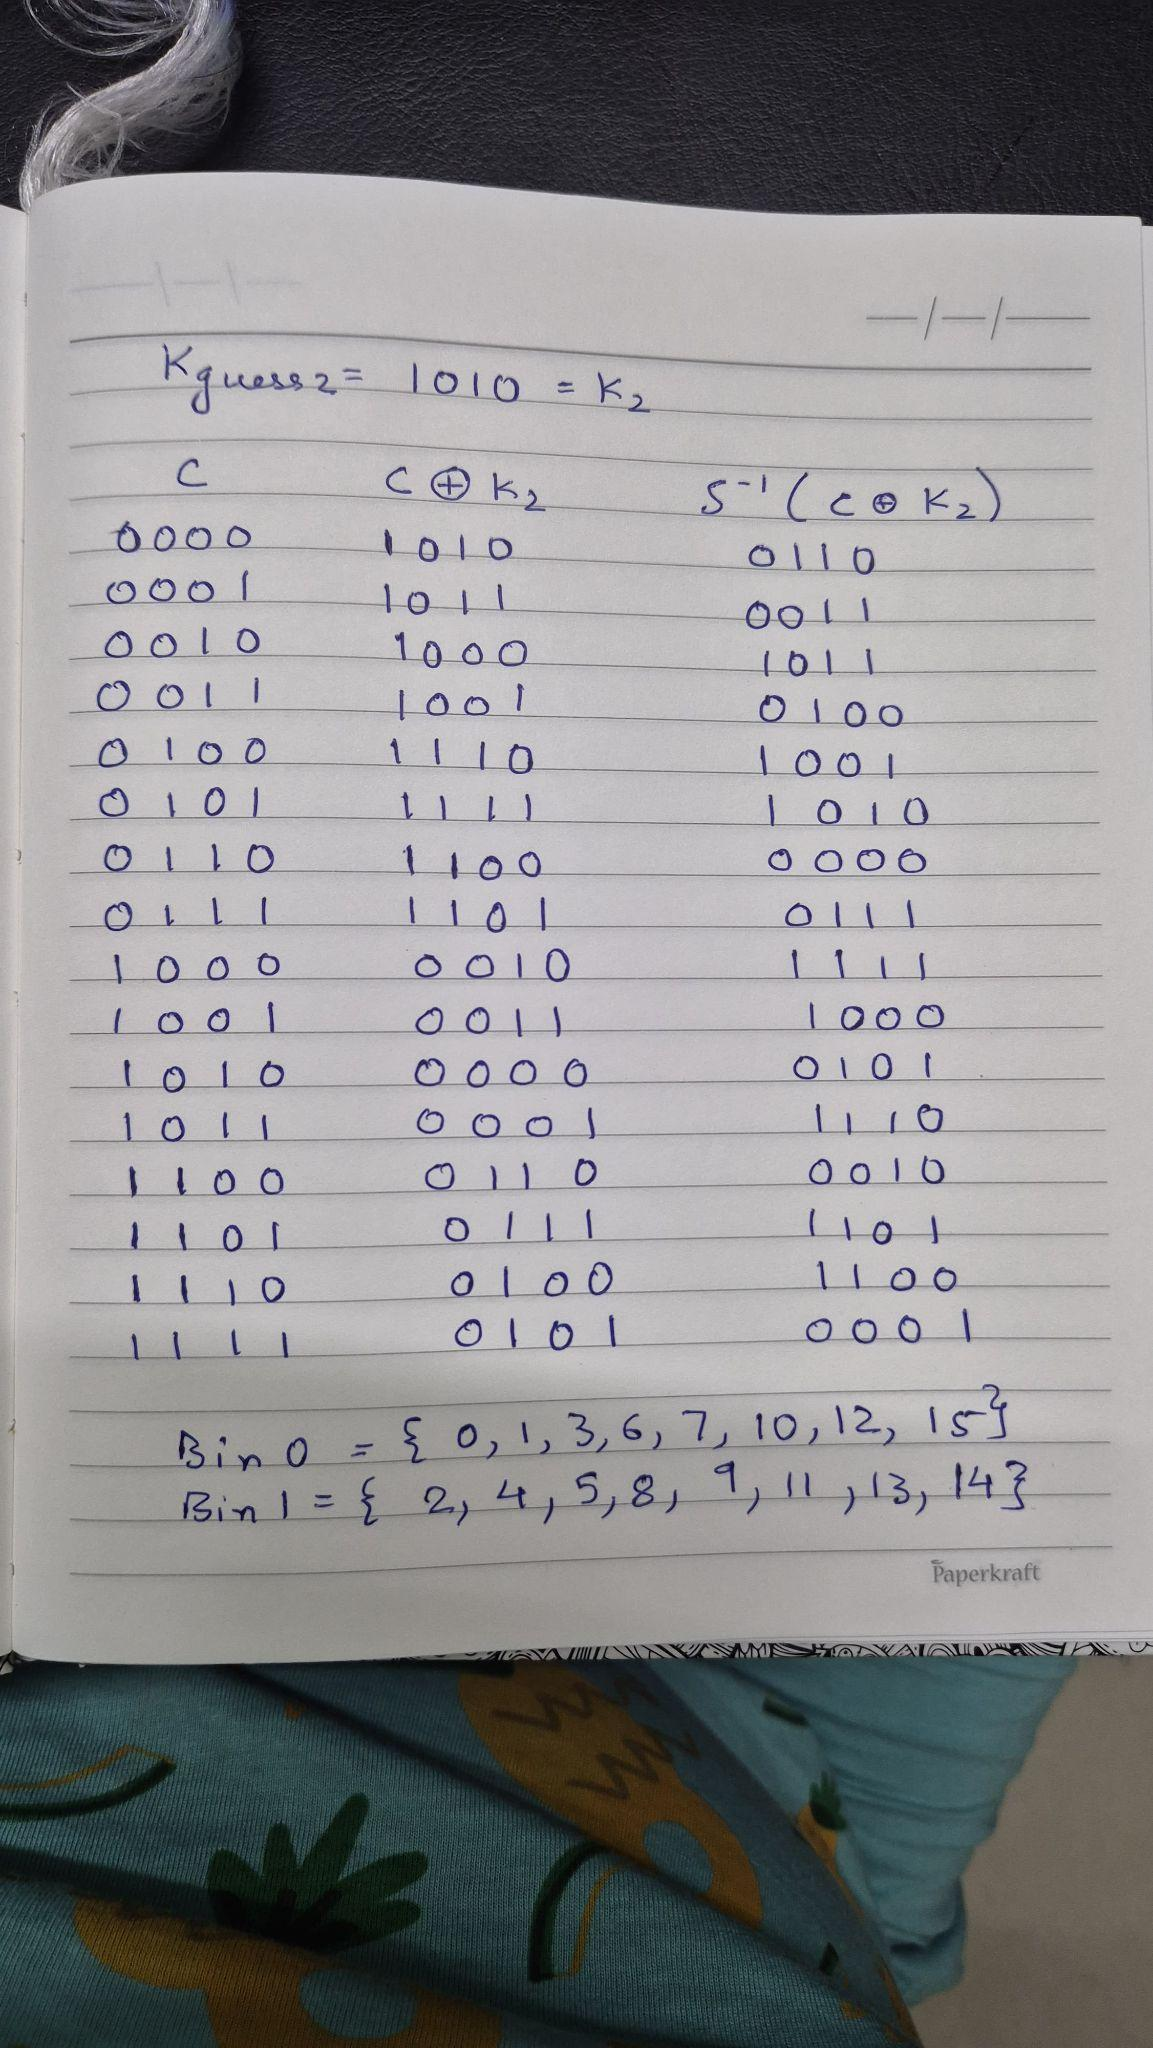 —/—/—
Kguess2 = 1010 = K2
C C ⊕ K2 S⁻¹ ( C ⊕ K2 )
0000 1010 0110
0001 1011 0011
0010 1000 1011
0011 1001 0100
0100 1110 1001
0101 1111 1010
0110 1100 0000
0111 1101 0111
1000 0010 1111
1001 0011 1000
1010 0000 0101
1011 0001 1110
1100 0110 0010
1101 0111 1101
1110 0100 1100
1111 0101 0001
Bin 0 = { 0, 1, 3, 6, 7, 10, 12, 15}
Bin 1 = { 2, 4, 5, 8, 9, 11, 13, 14}
Paperkraft